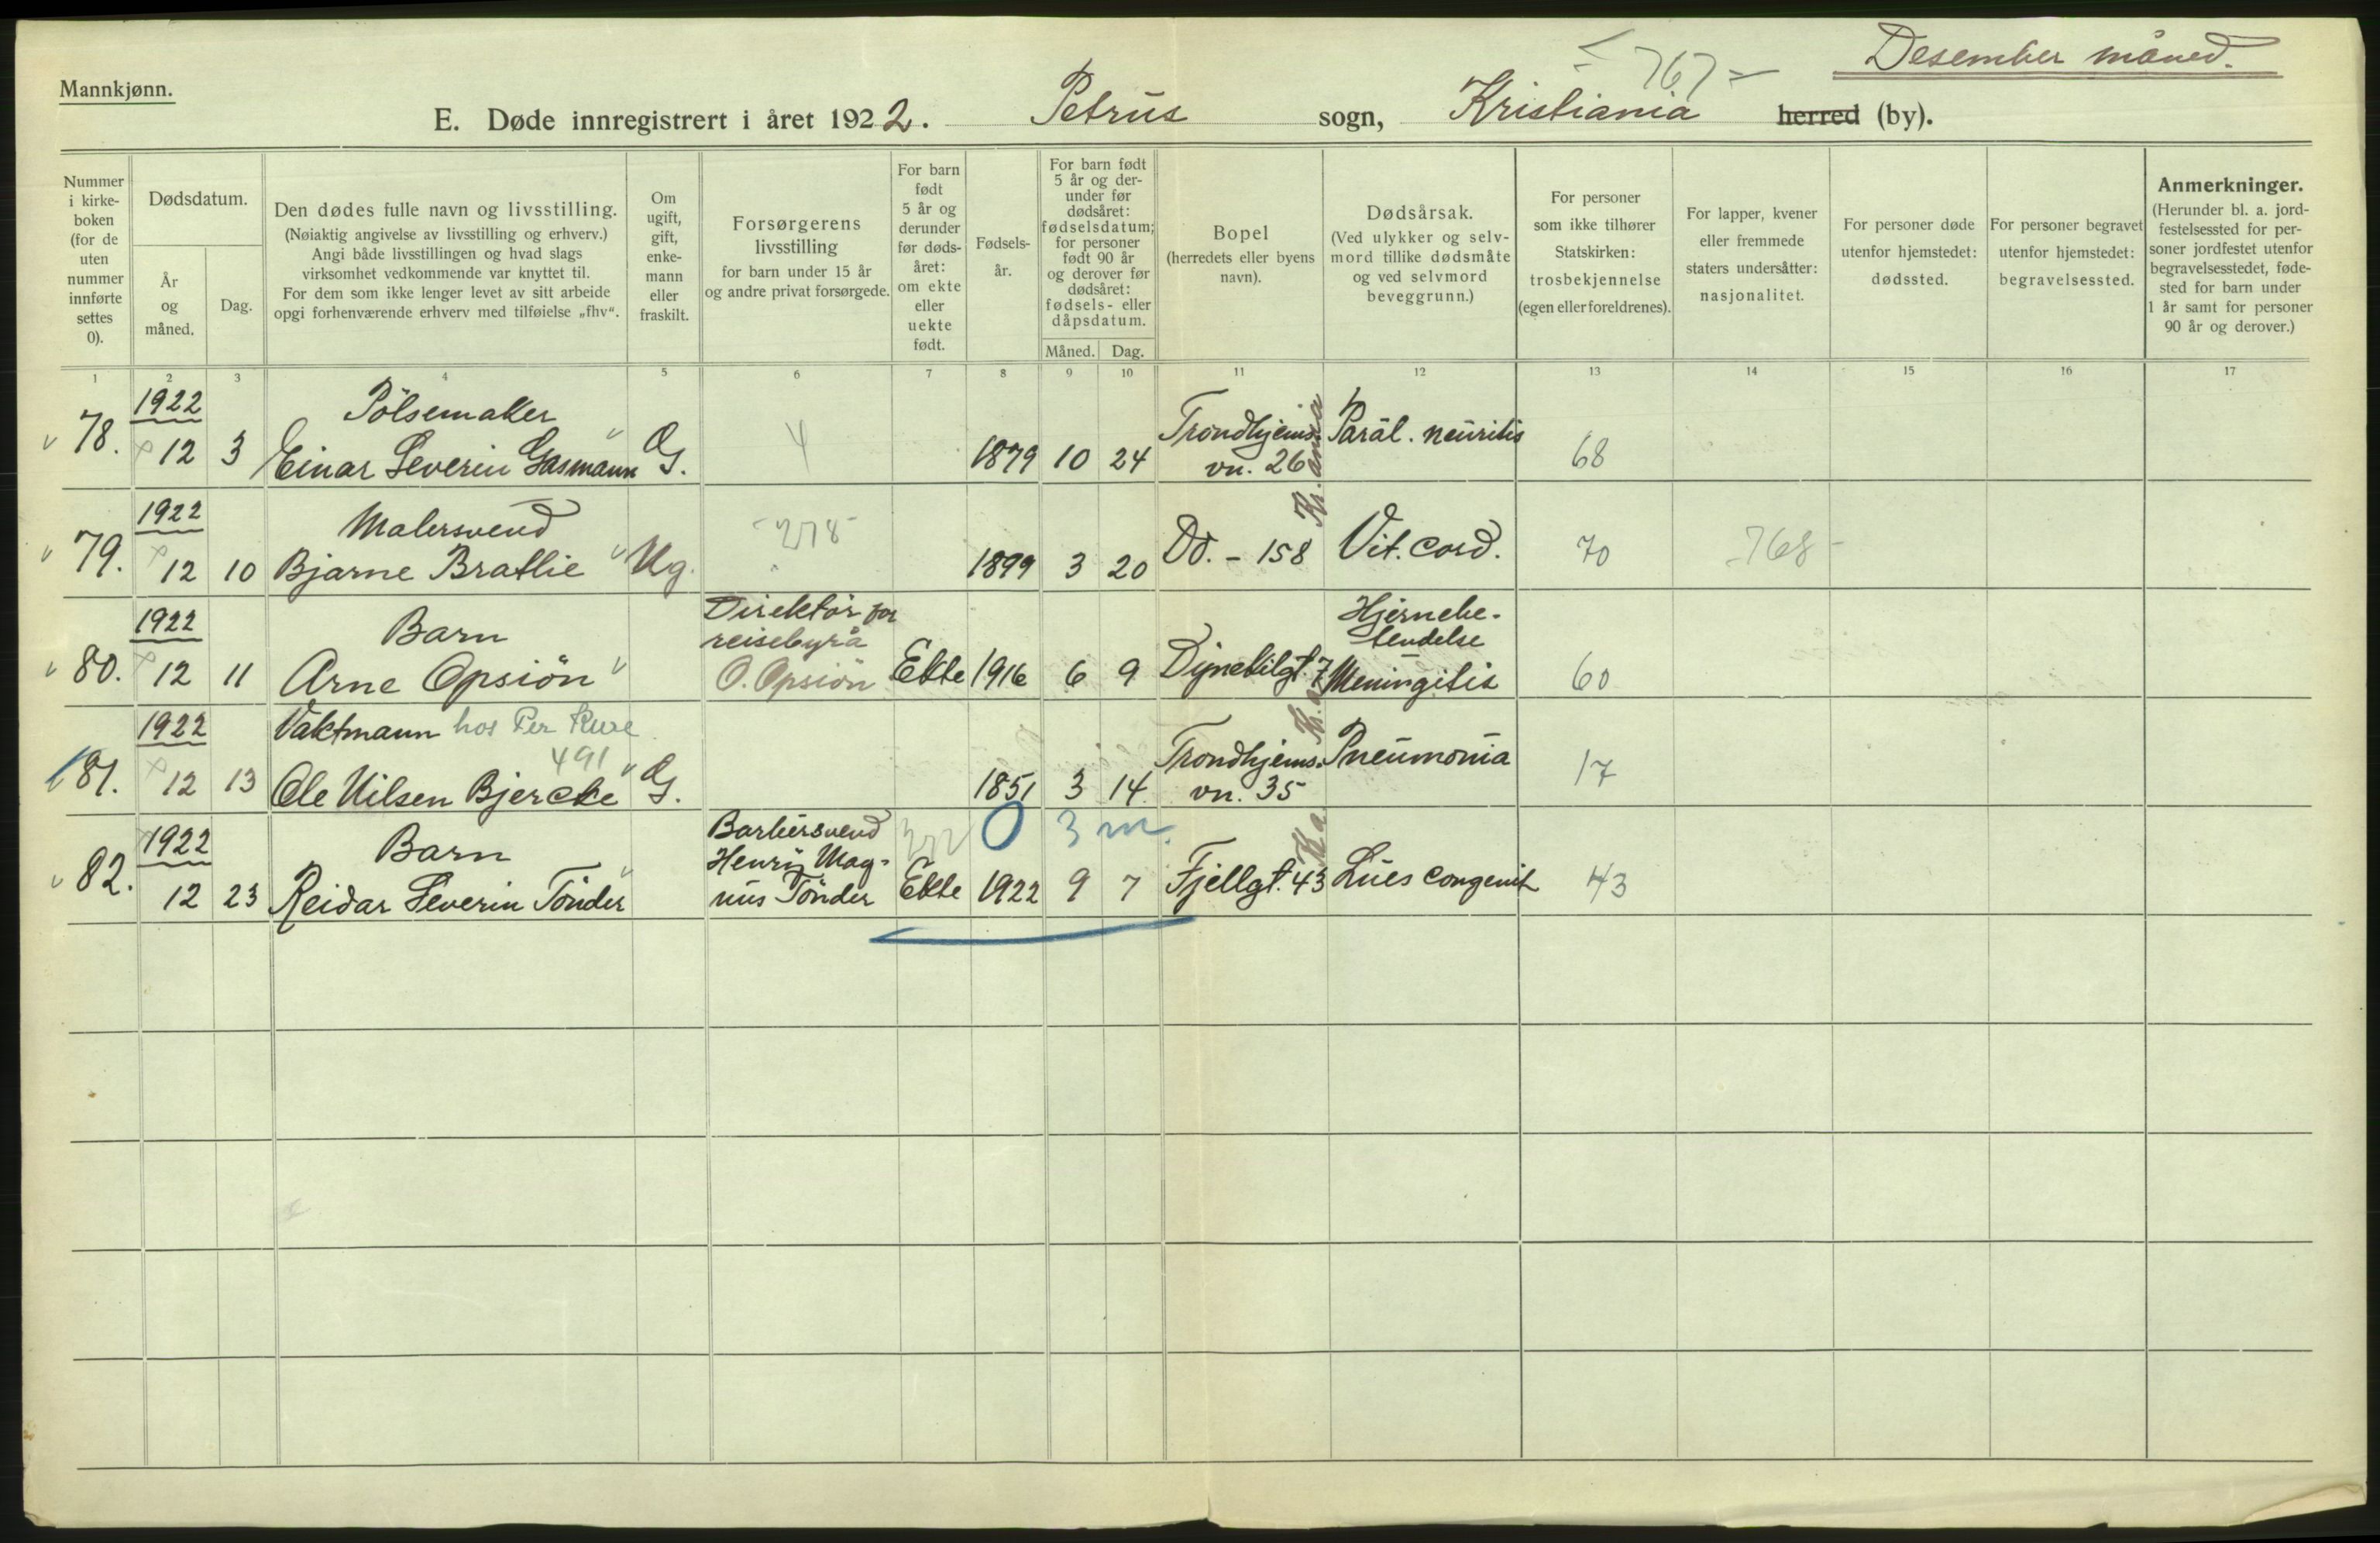 Desember måned.
- 767 -
Mannkjønn.
E. Døde innregistrert i året 1922. Petrus sogn, Kristiania herred (by).
Nummer i kirke-boken (for de uten nummer innførte settes 0).
Dødsdatum.
År og måned.
Dag.
Den dødes fulle navn og livsstilling.
(Nøiaktig angivelse av livsstilling og erhverv.)
Angi både livsstillingen og hvad slags
virksomhet vedkommende var knyttet til.
For dem som ikke lenger levet av sitt arbeide
opgi forhenværende erhverv med tilføielse „fhv“.
Om ugift, gift, enke-mann eller fraskilt.
Forsørgerens livsstilling
for barn under 15 år
og andre privat forsørgede.
For barn født 5 år og derunder før døds-året: om ekte eller uekte født.
Fødsels-år.
For barn født 5 år og der-under før dødsåret: fødselsdatum; for personer født 90 år og derover før dødsåret: fødsels- eller dåpsdatum.
Måned. Dag.
Bopel
(herredets eller byens navn).
Dødsårsak.
(Ved ulykker og selv-mord tillike dødsmåte og ved selvmord beveggrunn.)
For personer som ikke tilhører Statskirken: trosbekjennelse (egen eller foreldrenes).
For lapper, kvener eller fremmede staters undersåtter: nasjonalitet.
For personer døde utenfor hjemstedet: dødssted.
For personer begravet utenfor hjemstedet: begravelsessted.
Anmerkninger.
(Herunder bl. a. jord-festelsessted for per-soner jordfestet utenfor begravelsesstedet, føde-sted for barn under 1 år samt for personer 90 år og derover.)
1 2 3 4 5 6 7 8 9 10 11 12 13 14 15 16 17
1922 Pölsemaker Trondhjems- Paral. neuritis
78. 12 3 Einar Severin Gasmann G. 4 1879 10 24 vn. 26 Kr.ania 68
1922 Malersvend
79. 12 10 Bjarne Bratlie Ug. -278- 1899 3 20 Do. - 158 Vit. cord. 70 -768-
1922 Barn Direktör for reisebyrå Hjernebe-tendelse
80. 12 11 Arne Opsiön O. Opsiön Ekte 1916 6 9 Dynekilgt. 7 Meningitis 60
1922 Vaktmann hos Per Kure Trondhjems- Pneumonia
491
81. 12 13 Ole Nilsen Bjercke G. 1851 3 14 vn. 35 17
1922 Barn Barbersvend 0 3 m.
Henry Mag-
82. 12 23 Reidar Severin Tönder nus Tönder Ekte 1922 9 7 Fjellgt. 43 Lues congenit 43